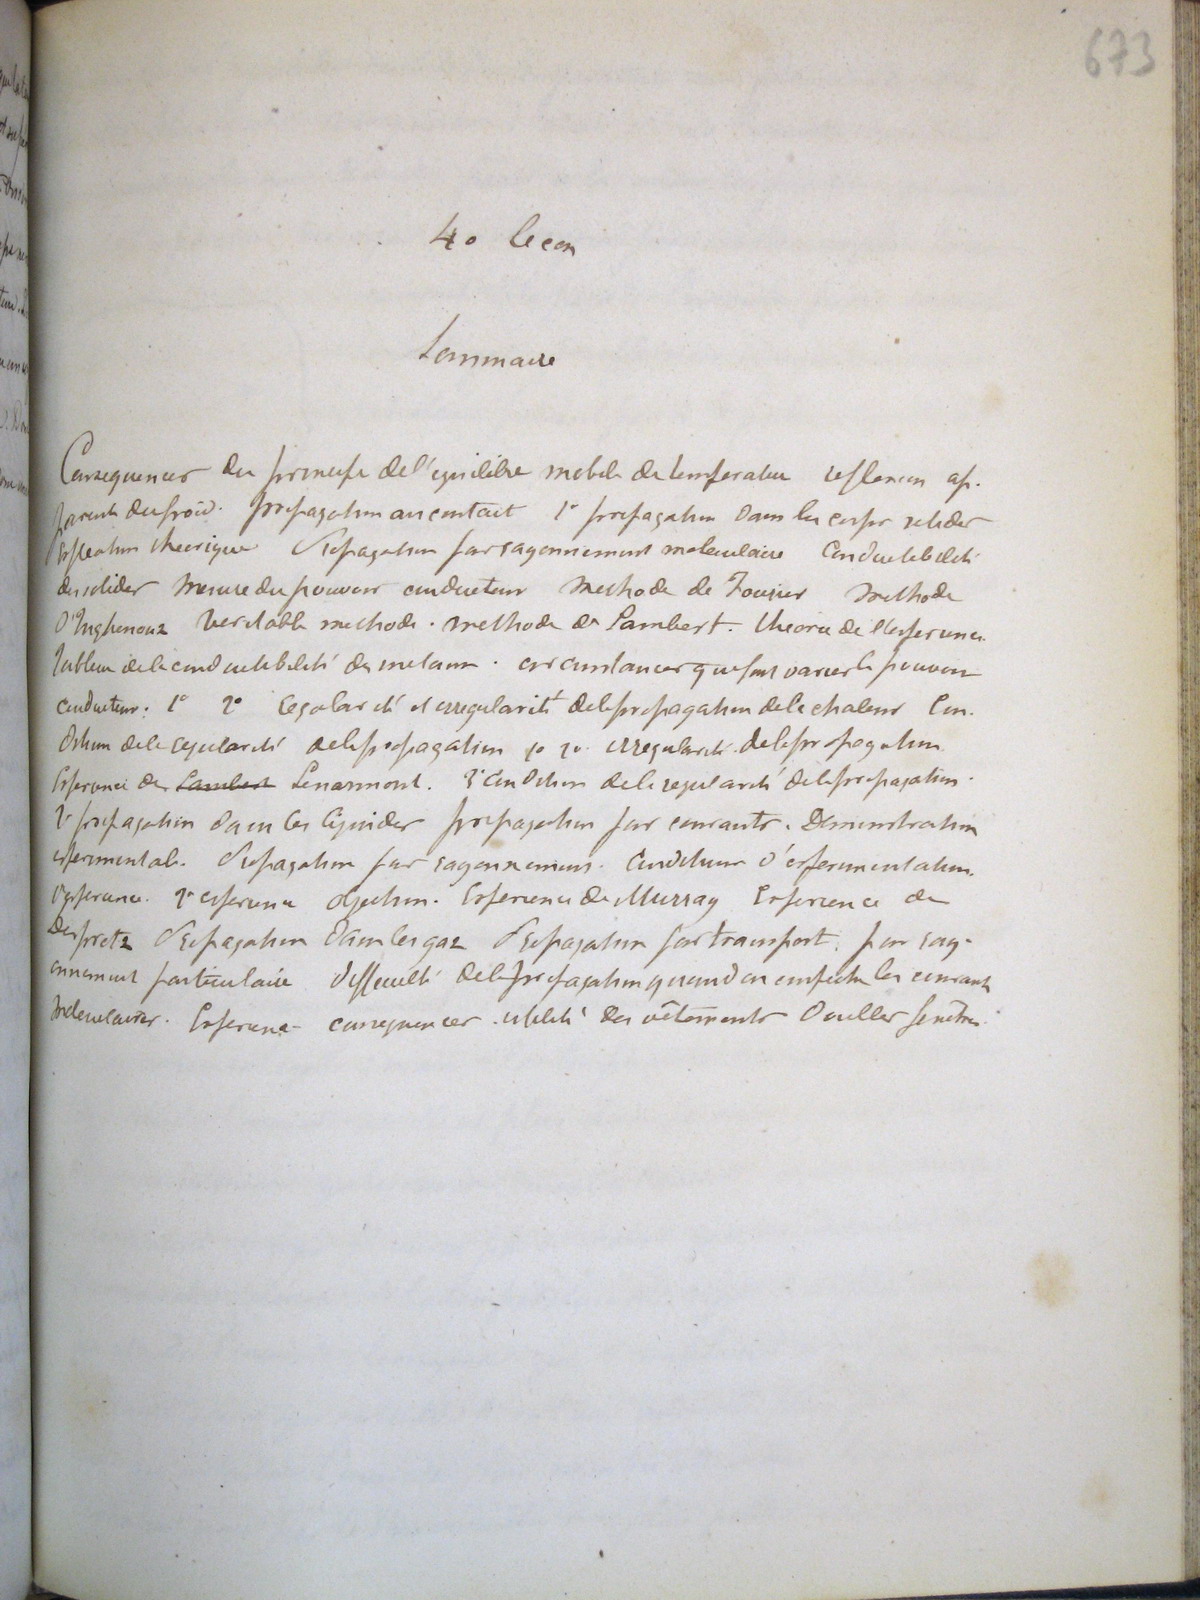 673
40 leçon
Sommaire
Consequences du principe de l'equilibre mobile de temperature reflexion ap-
parente du froid. propagation au contact 1° propagation dans les corps solides
Explication theorique Propagation par rayonnement moleculaire Conductibilité
des solides Mesure du pouvoir conducteur Methode de Fourier Methode
d'Inghenouz Veritable methode. methode de Lambert. theorie de l'experience
Tableau de la conductibilité des metaux. circonstances qui font varier le pouvoir
conducteur: 1° 2° regularité et irregularité de la propagation de la chaleur Con-
dition de la regularité de la propagation 1° 2° irregularité de la propagation
Experience de Lambert Senarmont. 3° Condition de la regularité de la propagation.
2° propagation dans les liquides propagation par courants. Demonstration
experimentale. Propagation par rayonnement. Conditions d'experimentation.
1° experience. 2° experience objection. Experience de Murray Experience de
Despretz Propagation dans les gaz Propagation par transport. par ray-
onnement particulaire difficulté de la propagation quand on empeche les courants
moleculaires. Experience consequences utilité des vêtements doubles fenêtres.